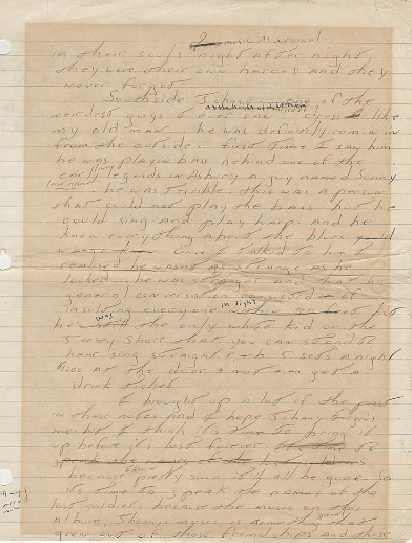 music as survival
in their souls night after night
they were their own heroes and they
never forgot.
Southside Johnny one of the
weirdest guys I ever saw. dress like
my old man he was definitely comin in
from the outside. first time I say him
he was playin bass behind one of the
early legends in Asbury a guy named Sonny
last name
he was terrible. this was a person
that could not play the bass but he
could sing and play harp. and he
knew everything about the blues
I talked to him
realized he wasn't as strange as he
looked... he was stranger and that his
general conversation consisted of
insulting everyone in sight but
he was the only white kid on the
Jersey Shore that you can stand to
hear sing straight r+b 5 sets a night
at the door + not even get a
drink ticket
I brought up a lot of the past
in these notes and I hope Johnny forgives
me but I think it's time to bring it
up before it's lost forever,
because pretty soon it'll all be gone so
it's time to speak the names of the
lost soldiers, because the music on this
album, Johnny's music is something that
grew out of those friendships and those